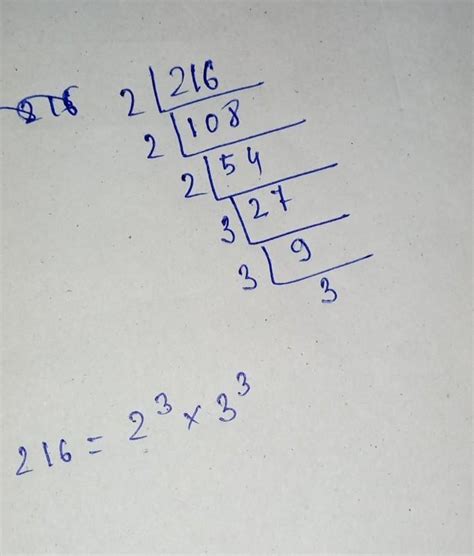 216 2 216
2 108
2 54
3 27
3 9
3
216 = 2³ × 3³